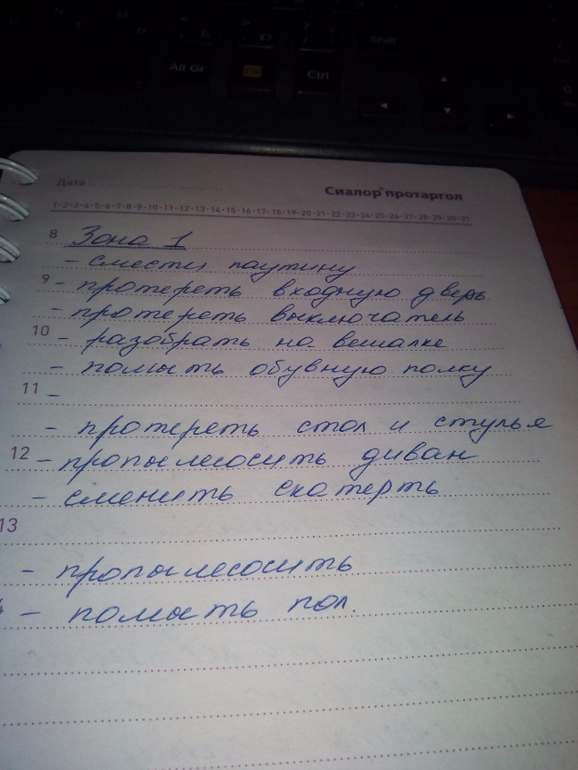 Alt Gr
Ctrl
Shift
Дата
Сиалор® протаргол
1•2•3•4•5•6•7•8•9•10•11•12•13•14•15•16•17•18•19•20•21•22•23•24•25•26•27•28•29•30•31
8 Зона 1
- смести паутину
9 - протереть входную дверь
- протереть выключатель
10 - разобрать на вешалке
- помыть обувную полку
11 -
- протереть стол и стулья
12 - пропылесосить диван
- сменить скатерть
13
- пропылесосить
- помыть пол.